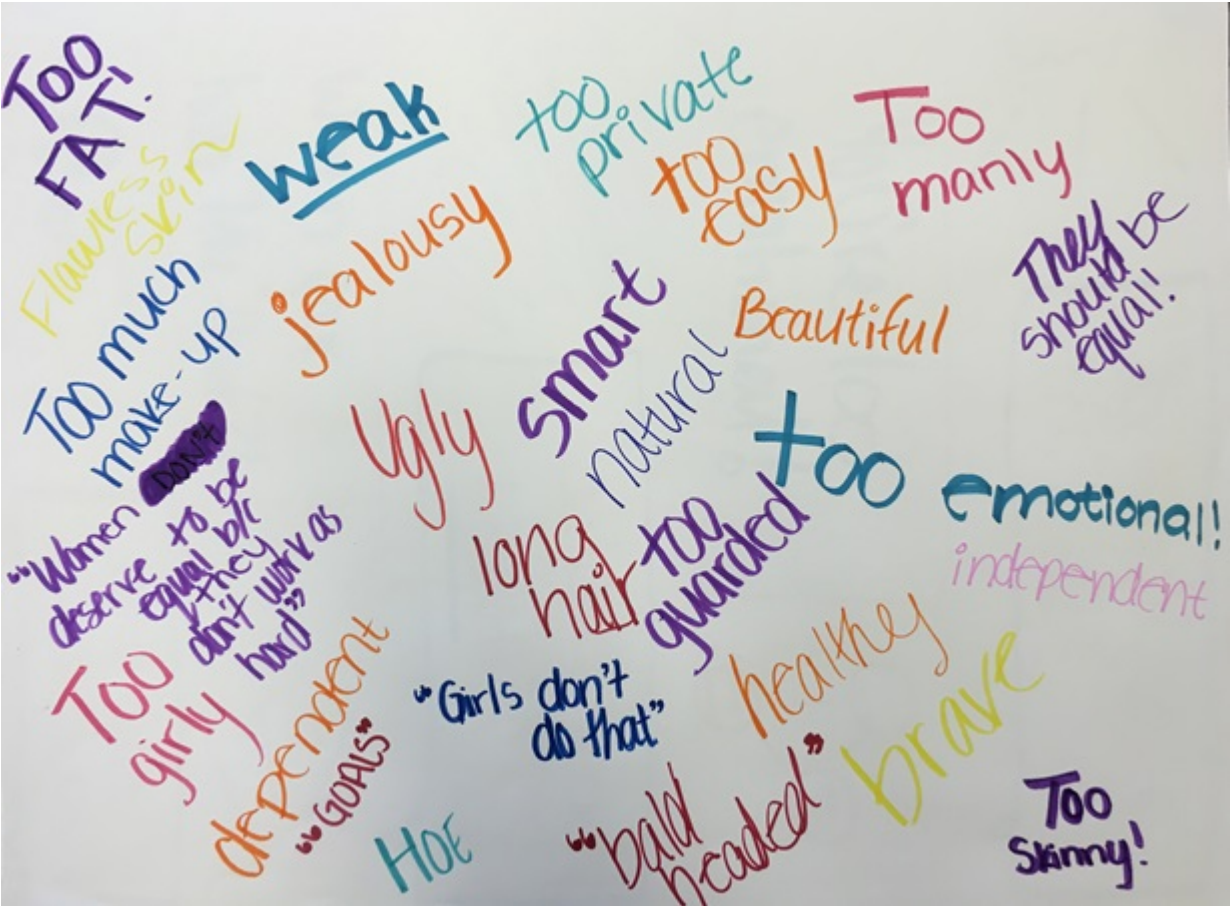 Too
FAT!
Flawless
skin
weak
too
private
too
easy
Too
manly
They
should be
equal!
jealousy
Too much
make-up
smart
natural
Beautiful
Ugly
too emotional!
"Women DON'T
deserve to be
equal b/c
they
don't work as
hard"
long
hair
too
guarded
independent
Too
girly
dependent
"GOALS"
"Girls don't
do that"
healthy
brave
HOE
"bald
headed"
Too
Skinny!